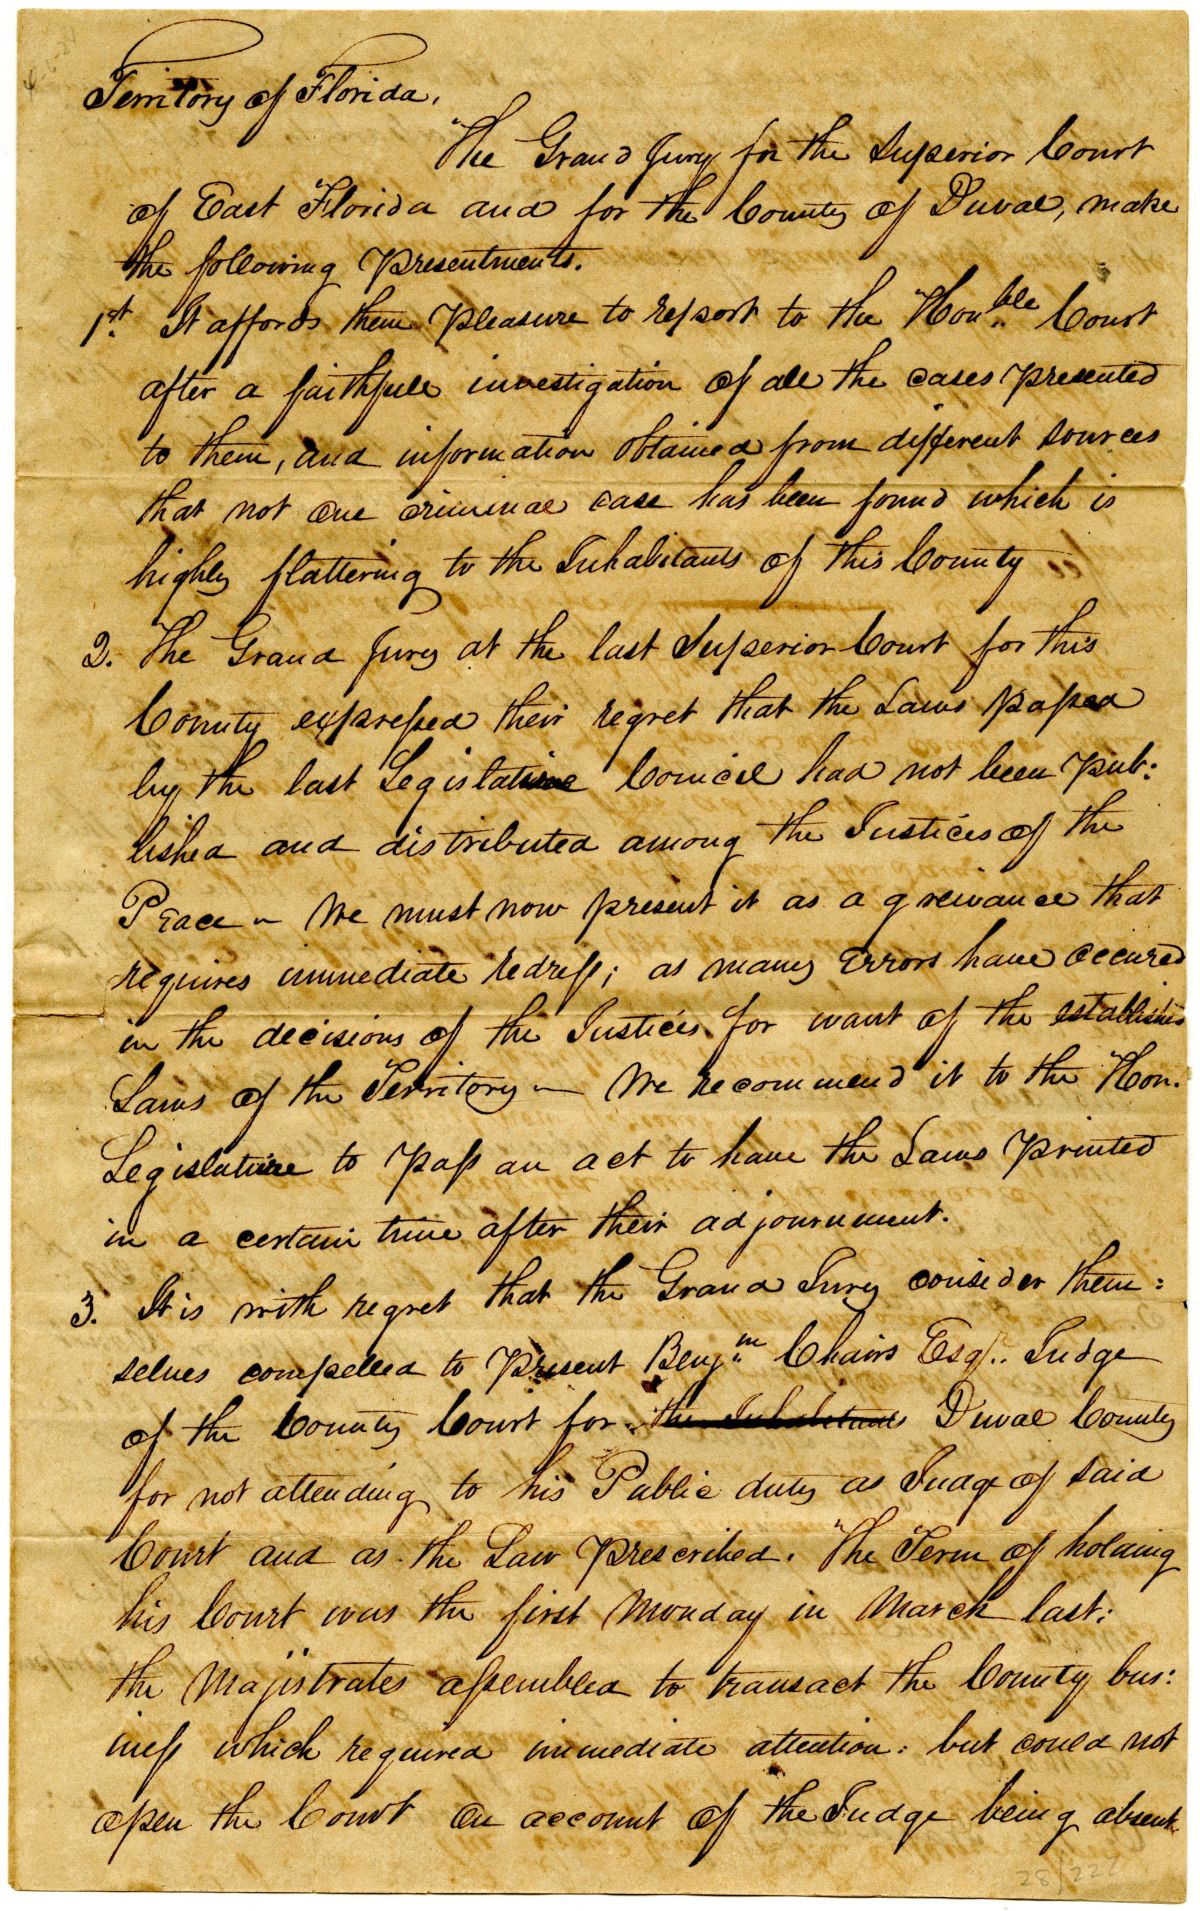 Territory of Florida.
The Grand Jury for the Superior Court
of East Florida and for the County of Duval, make
the following Presentments.
1st. It affords them pleasure to report to the Honble Court
after a faithfull investigation of all the cases presented
to them, and information obtained from different sources
that not one criminal case has been found which is
highly flattering to the Inhabitants of this County
2. The Grand Jury at the last Superior Court for this
County expressed their regret that the Laws passed
by the last Legislative Council had not been pub:
lished and distributed among the Justices of the
Peace – We must now present it as a greivance that
requires immediate redress; as many Errors have occured
in the decisions of the Justices for want of the established
Laws of the Territory – We recommend it to the Hon.
Legislature to pass an act to have the Laws printed
in a certain time after their adjournment.
3. It is with regret that the Grand Jury consider them:
selves compelled to Present Benjm. Chairs Esqr. Judge
of the County Court for the Inhabitants Duval County
for not attending to his Public duty as Judge of said
Court and as the Law prescribed. The Term of holding
his Court was the first Monday in March last:
the Majistrates assembled to transact the County bus:
iness which required immediate attention: but could not
open the Court on account of the Judge being absent.
28/222